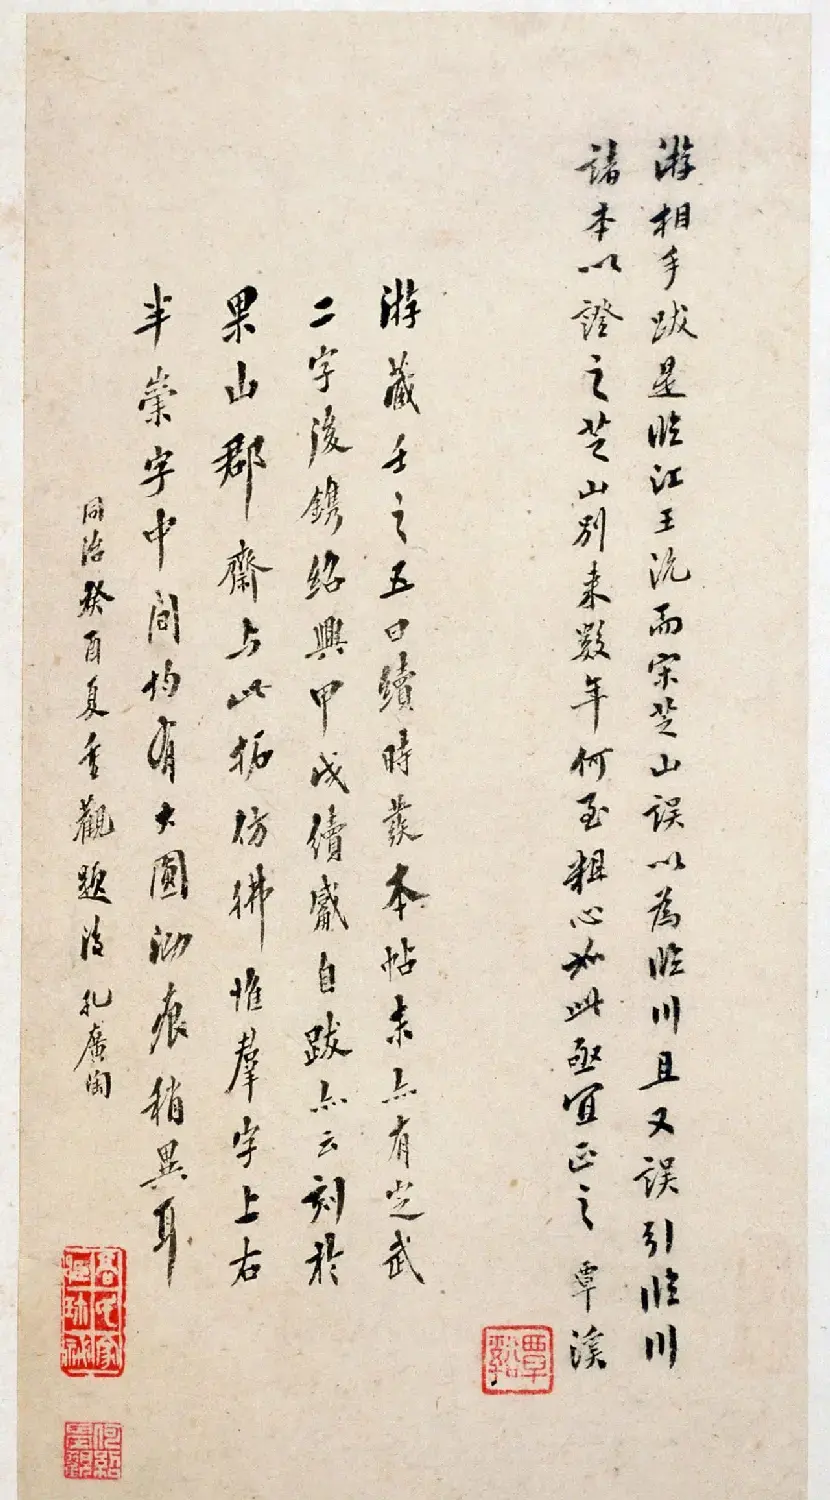 游相手跋是臨江王沇而宋芝山誤以為臨川且又誤引臨川
諸本以證之芝山別來數年何至粗心如此亟宜正之 覃溪
覃谿
游藏壬之五曰續時發本帖末亦有定武
二字後鐫紹興甲戌續自跋亦云刻於
果山郡齋与此拓彷彿惟羣字上右
半崇字中間均有大圓泐痕稍異耳
同治癸酉夏重觀題後 孔廣陶